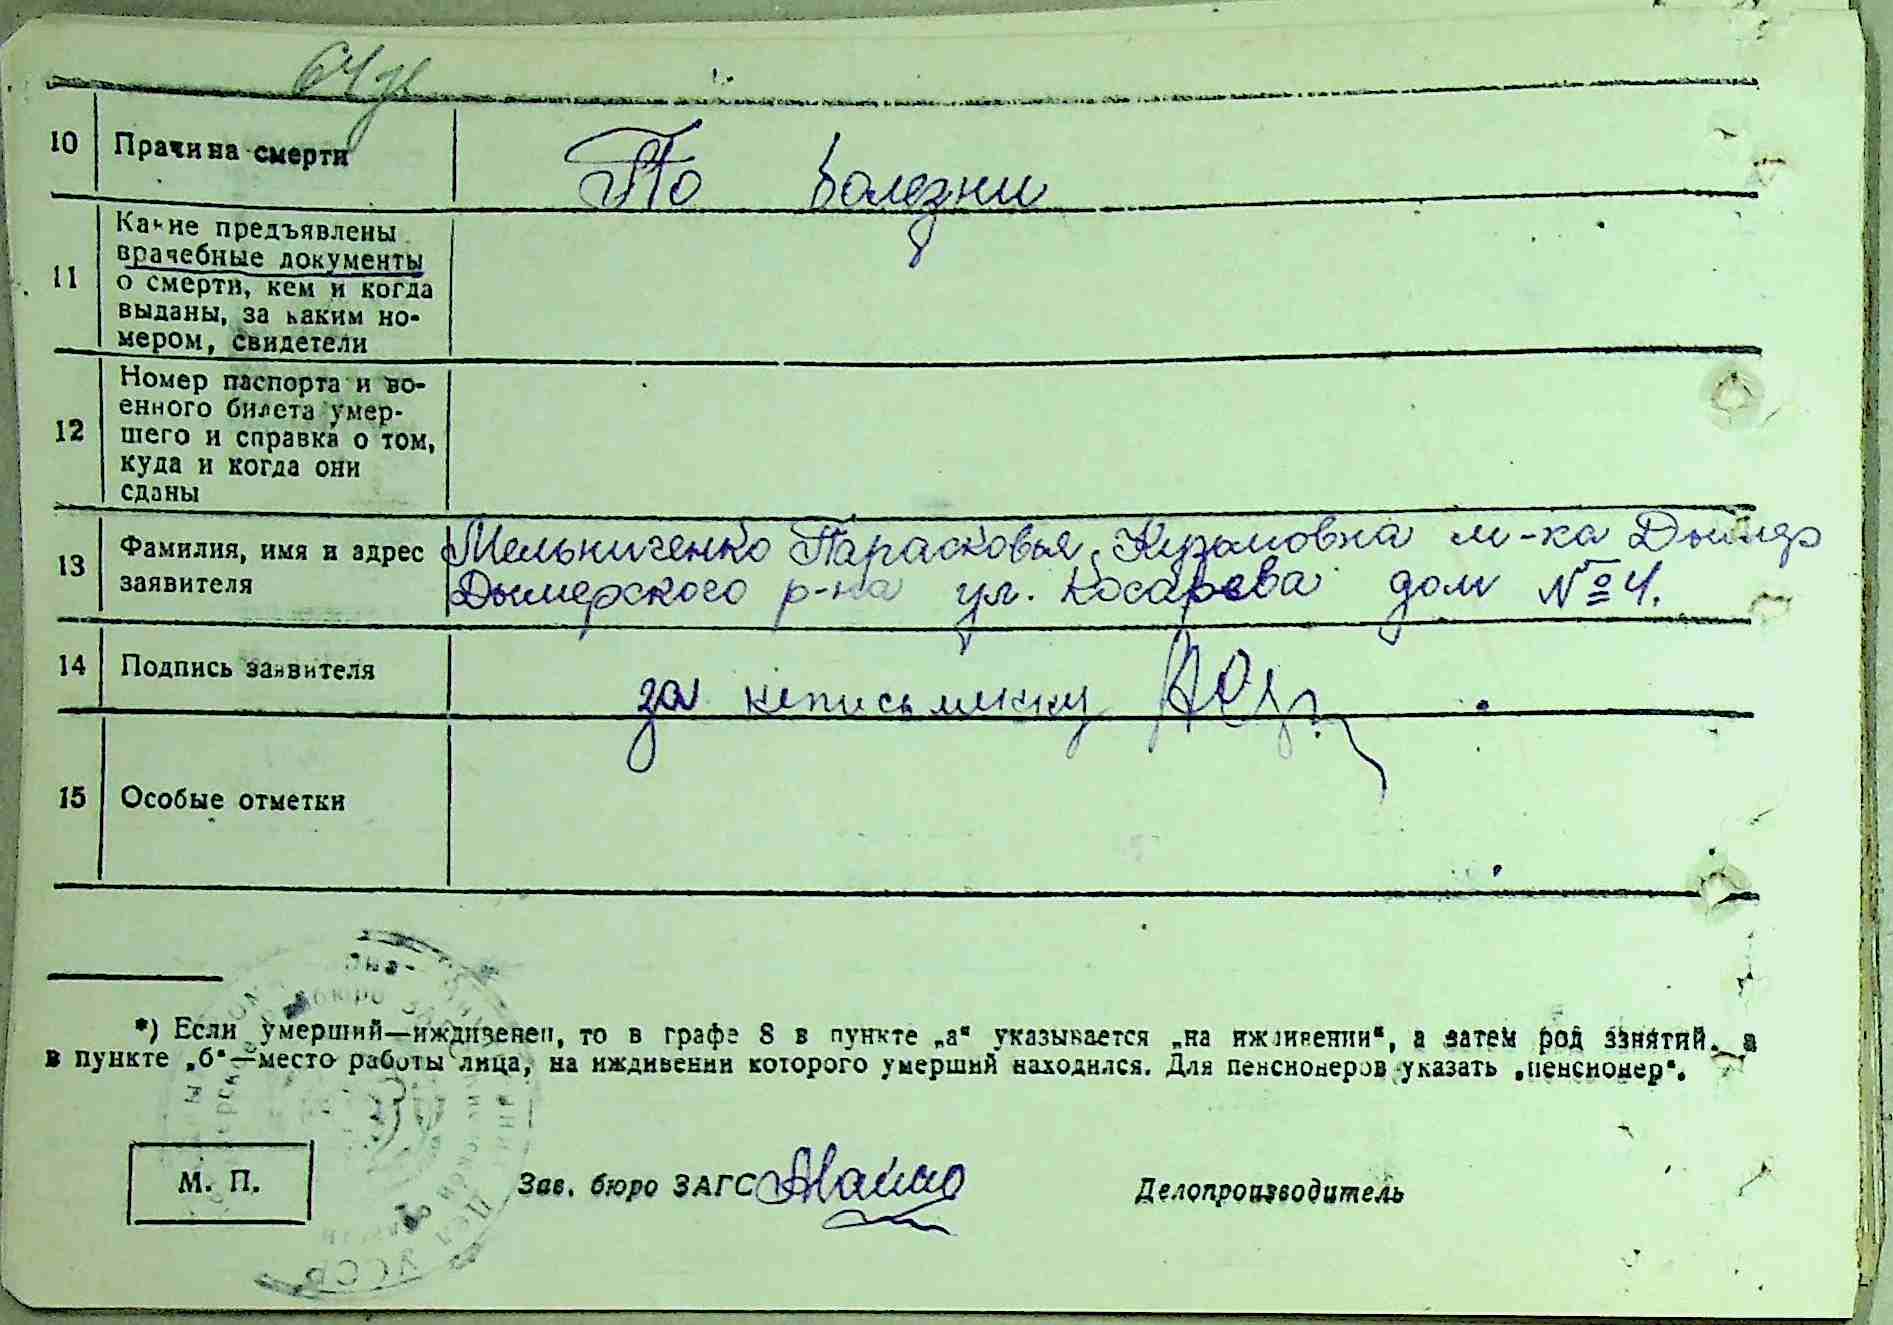 10 Причина смерти По болезни
11 Какие предъявлены
врачебные документы
о смерти, кем и когда
выданы, за каким но-
мером, свидетели
12 Номер паспорта и во-
енного билета умер-
шего и справка о том,
куда и когда они
сданы
13 Фамилия, имя и адрес
заявителя
Мельниченко Парасковья Кузьмовна м-ка Дымер
Дымерского р-на ул. Косарева дом № 4.
14 Подпись заявителя за неписьменну
15 Особые отметки
*) Если умерший—иждивенец, то в графе 8 в пункте „а“ указывается „на иждивении“, а затем род занятий, а
в пункте „б“—место работы лица, на иждивении которого умерший находился. Для пенсионеров указать „пенсионер“.
М. П.
Зав. бюро ЗАГС
Делопроизводитель